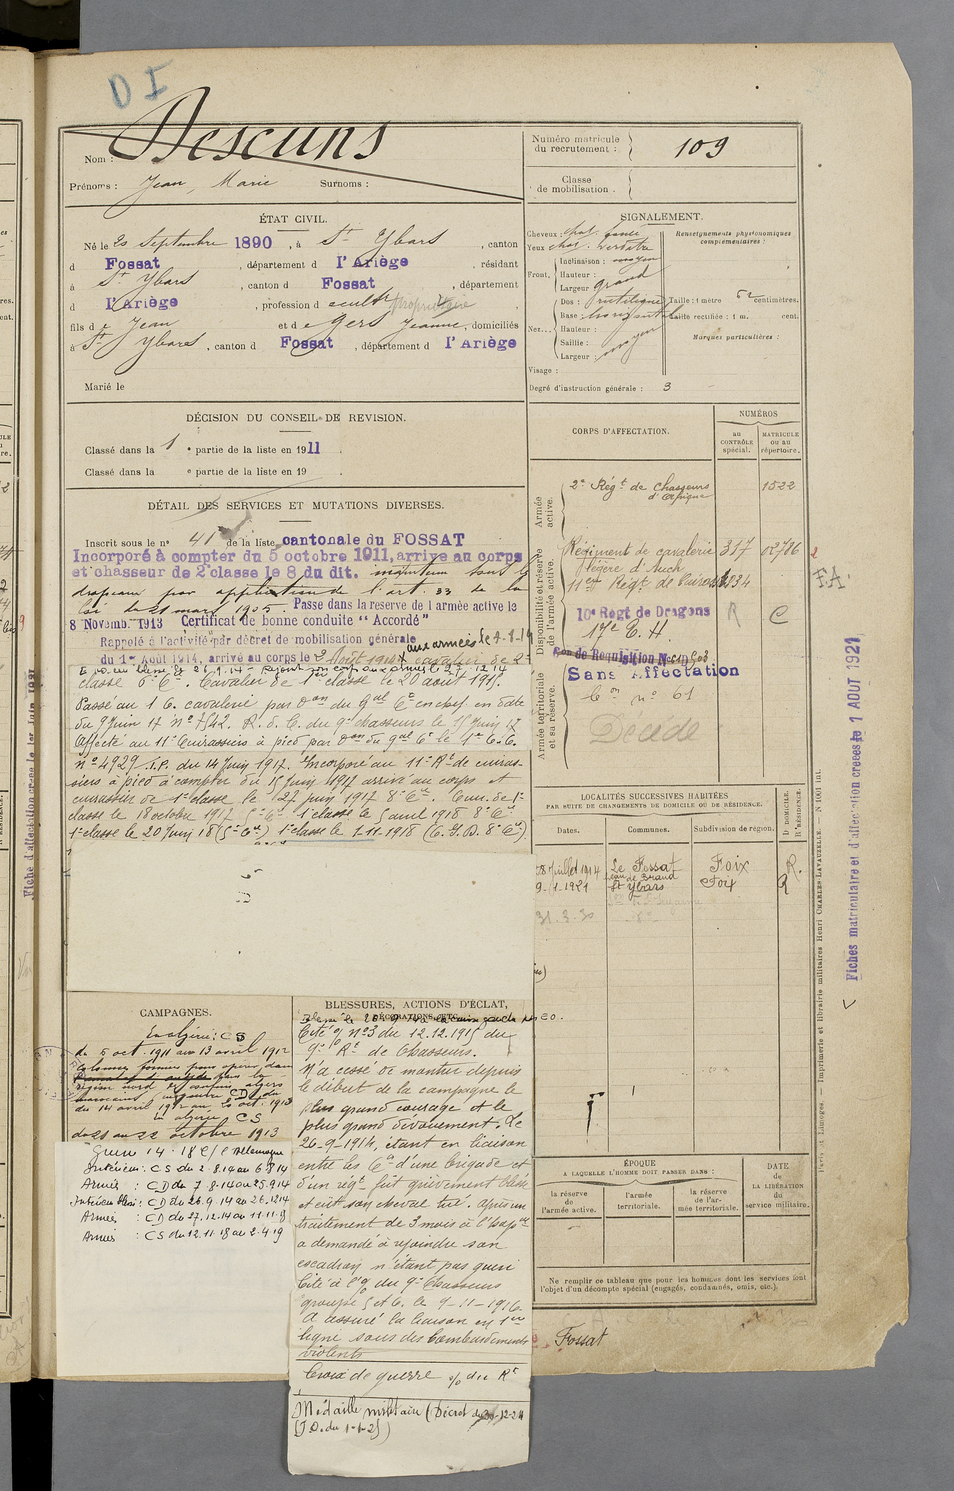 D I
Descuns
Nom :
Prénoms : Jean, Marie Surnoms :
Numéro matricule du recrutement : 109
Classe de mobilisation .
ÉTAT CIVIL.
Né le 20 Septembre 1890 , à St Ybars , canton
d Fossat , département d l'Ariège , résidant
à St Ybars , canton d Fossat , département
d l'Ariège , profession d propriétaire
fils de Jean et de Gers Jeanne, domiciliés
à St Ybars , canton d Fossat , département d l'Ariège
Marié le
SIGNALEMENT.
Cheveux : chat. foncé
Yeux chat. verdâtre
Renseignements physionomiques complémentaires :
Front, Inclinaison : moyen
Hauteur :
Largeur grand
Nez... Dos : rectiligne
Base : horizontale
Hauteur :
Saillie :
Largeur : moyen
Taille : 1 mètre 62 centimètres.
Taille rectifiée : 1 m. cent.
Marques particulières :
Visage :
Degré d'instruction générale : 3
DÉCISION DU CONSEIL DE REVISION.
Classé dans la 1 e partie de la liste en 1911 .
Classé dans la e partie de la liste en 19 .
DÉTAIL DES SERVICES ET MUTATIONS DIVERSES.
Inscrit sous le n° 41 de la liste cantonale du FOSSAT
Incorporé à compter du 5 octobre 1911, arrive au corps
et chasseur de 2e classe le 8 du dit. maintenu sous les
drapeaux par application de l'art. 33 de la
loi du 21 mars 1905. Passe dans la reserve de l armée active le
8 Novemb. 1913 Certificat de bonne conduite " Accordé "
Rappelé à l'activité par décret de mobilisation générale aux armées le 7-8-14
du 1er Août 1914, arrivé au corps le 2 Août 1914 cavalier de 2e
classe 6e Cie. Cavalier de 1e classe le 20 août 1915.
Passé au 1 C. cavalerie par Don du Gal Ct en chef en date
du 9 Juin 17 n° 7542. R. d. C. du 9e chasseurs le 15 Juin 17
Affecté au 11e Cuirassiers à pied par Don du Gal Ct le 1er C. C.
n° 4929 T.P. du 14 Juin 1917. Incorporé au 11e Rt de cuiras-
siers à pied à compter du 15 Juin 1917 arrivé au corps et
cuirassier de 1e classe le 27 juin 1917 8e Cie. Cuir. de 1e
classe le 18 octobre 1917 5e Cie 1e classe le 5 avril 1918 8e Cie
1e classe le 20 Juin 18 (5e Cie) 1e classe le 1-11-1918 (C. I. D. 8e Cie)
CORPS D'AFFECTATION.
NUMÉROS
au CONTRÔLE spécial.
MATRICULE ou au répertoire.
Armée active.
2e Régt de Chasseurs d'Afrique 1522
Disponibilité et réserve de l'armée active.
Régiment de cavalerie 317 02726
légère d'Auch
11e Régt de Cuirass.
10e Regt de Dragons R C
17e E. H.
Con de Requisition N°
Sans Affectation
Armée territoriale et sa réserve.
Con n° 61
Décédé
LOCALITÉS SUCCESSIVES HABITÉES
PAR SUITE DE CHANGEMENTS DE DOMICILE OU DE RÉSIDENCE.
Dates. Communes. Subdivision de région. D DOMICILE. R RÉSIDENCE.
Juillet 1914 Le Fossat Foix R.
9-1-1921 St Ybars Foix R
31.3.30
CAMPAGNES.
En algérie : CS
du 5 oct. 1911 au 13 avril 1912
colonnes formées pour opérer dans
région nord des confins algéro
marocains, en guerre CD du
du 14 avril 1912 au 20 oct. 1913
En algérie CS
du 21 au 22 octobre 1913
Guerre 14-18 c/ l'Allemagne
Intérieur : CS du 2 8.14 au 6 8 14
Armées : CD du 7 8-14 au 25.9 14
Intérieur : CD du 26.9.14 au 26.12 14
Armées : CD du 27.12.14 au 11.11.18
Armées : CS du 12.11.18 au 2.4.19
BLESSURES, ACTIONS D'ÉCLAT,
DÉCORATIONS, ETC.
Cité O/ n° 3 du 12.12.1915 du
9e Rt de Chasseurs.
N'a cessé de montrer depuis
le début de la campagne le
plus grand courage et le
plus grand dévouement. Le
26-9-1914, étant en liaison
entre les Ct d'une brigade et
d'un régt fut grièvement blessé
et eut son cheval tué. Après un
traitement de 3 mois à l'hôpal
a demandé à rejoindre son
escadron n'étant pas guéri
Cité à l'O. du 9e Chasseurs
groupe le 9-11-1916.
A assuré la liaison en 1ère
ligne sous des bombardements
violents
Croix de guerre
Médaille militaire (Décret du -12-24
(J.O. du 1-1-25)
ÉPOQUE
A LAQUELLE L'HOMME DOIT PASSER DANS :
la réserve de l'armée active.
l'armée territoriale.
la réserve de l'armée territoriale.
DATE DE LA LIBÉRATION du service militaire.
Ne remplir ce tableau que pour les hommes dont les services font
l'objet d'un décompte spécial (engagés, condamnés, omis, etc.).
Fossat
FA.
Fiches matriculaire et d'affectation creees le 1 AOUT 1921
Paris et Limoges. — Imprimerie et librairie militaires Henri CHARLES-LAVAUZELLE.
Fiche d'affectation creee le 1er Juin